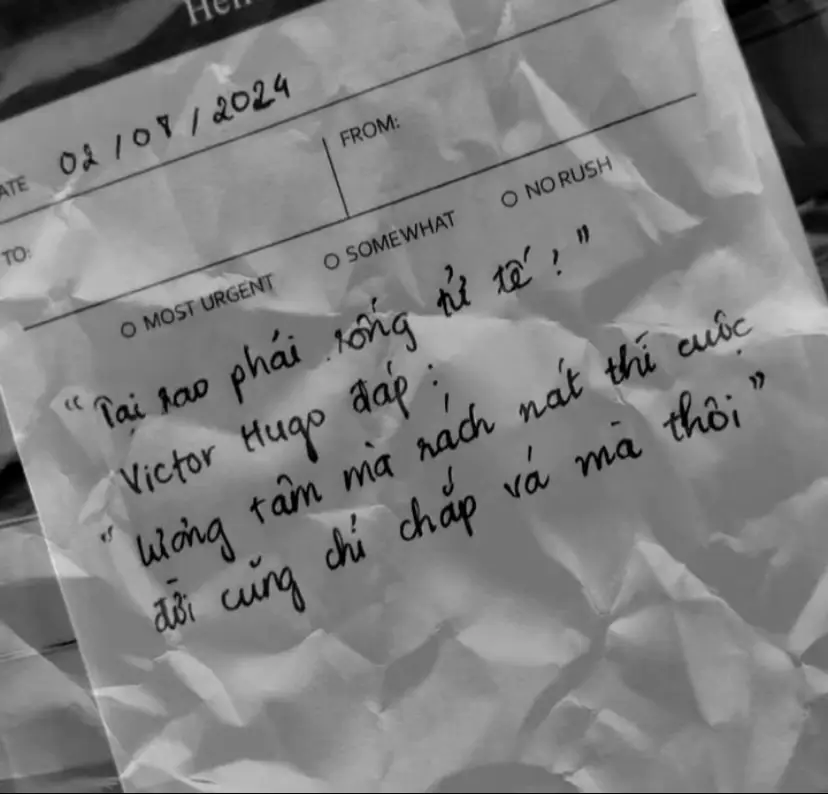 Hel
ATE 02/08/2024
FROM:
TO:
O MOST URGENT O SOMEWHAT O NO RUSH
"Tại sao phải sống tử tế!"
Victor Hugo đáp:
"Lương tâm mà rách nát thì cuộc
đời cũng chỉ chắp vá mà thôi"